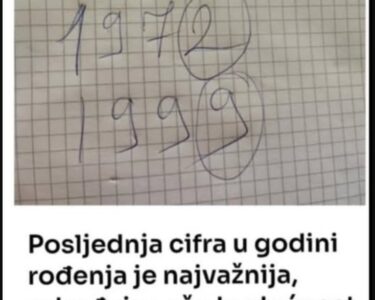 1972
1999
Posljednja cifra u godini
rođenja je najvažnija,